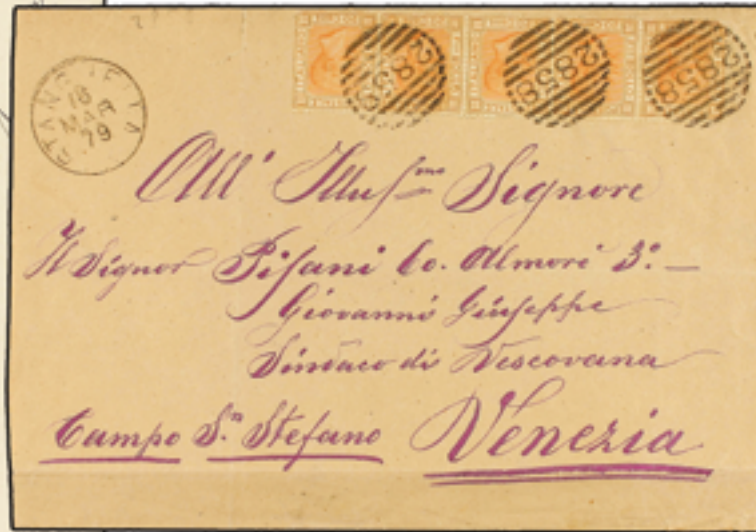 18
MAR
79
2858
2858
2858
All' Illus.mo Signore
Il Signor Pisani Co. Almorò 3.º —
Giovanni Giuseppe
Sindaco di Vescovana
Campo S.n Stefano Venezia